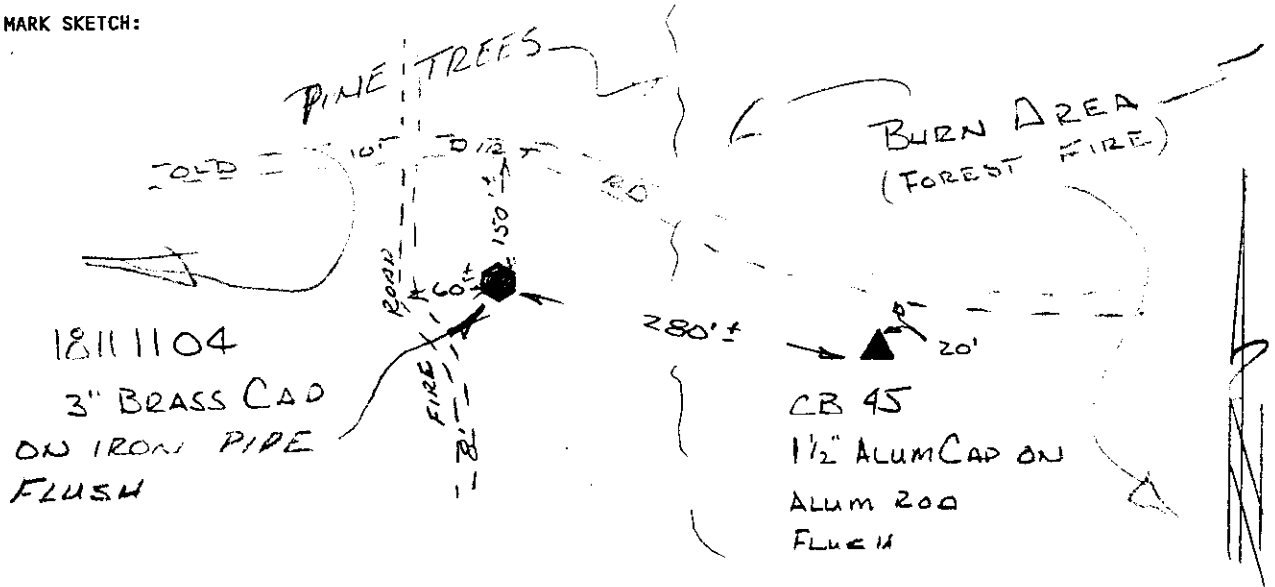 MARK SKETCH:
PINE TREES
BURN AREA
(FOREST FIRE)
OLD 10' DIRT RD
150'±
ROAD
60'±
280'±
20'
FIRE
8'
18111104
3" BRASS CAP
ON IRON PIPE
FLUSH
CB 45
1½" ALUM CAP ON
ALUM ROD
FLUSH